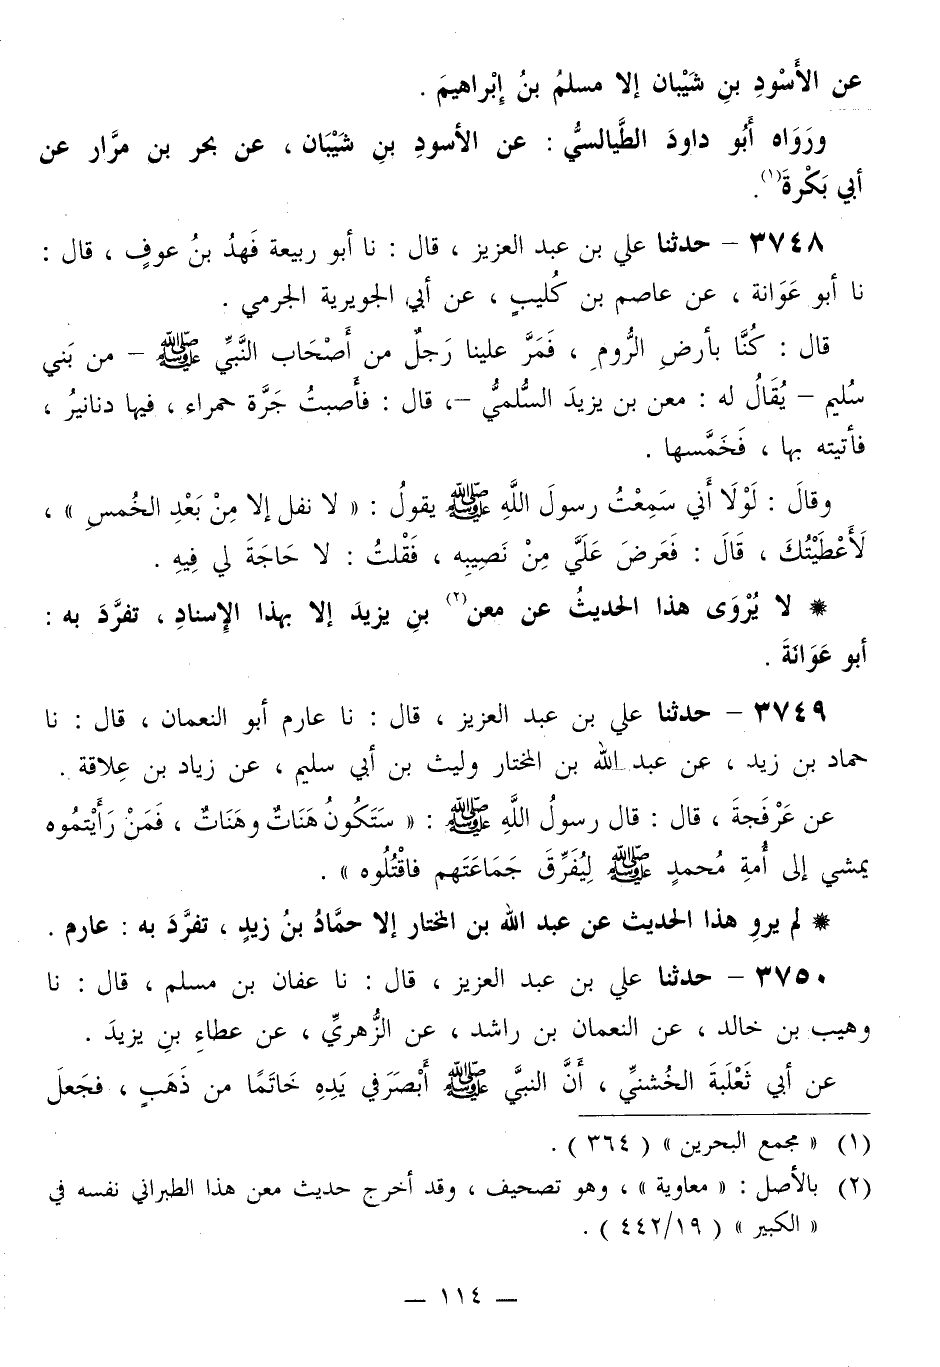 عن الأَسْودِ بنِ شَيْبان إلا مسلمُ بنُ إبْراهيمَ .
ورَوَاه أَبُو داودَ الطَّيالسيُّ : عن الأسودِ بنِ شَيْبَان ، عن بحر بن مرَّار عن
أبي بَكْرةَ(١).
٣٧٤٨ – حدثنا علي بن عبد العزيز ، قال : نا أبو ربيعة فَهدُ بنُ عوفٍ ، قال :
نا أبو عَوَانة ، عن عاصم بن كُليبٍ ، عن أبي الجويرية الجرمي .
قال : كُنَّا بأرضِ الرُّومِ ، فَمَرَّ علينا رَجلٌ من أَصْحَاب النَّبيِّ ﷺ – من بَني
سُليم – يُقَالُ له : معن بن يزيدَ السُّلميُّ –، قال : فأَصبتُ جَرَّة حمراء ، فيها دنانيرُ ،
فأتيته بها ، فَخَمَّسها .
وقالَ : لَوْلَا أَني سَمِعْتُ رسولَ اللَّهِ ﷺ يقولُ : « لا نفل إلا مِنْ بَعْدِ الخُمسِ » ،
لَأَعْطَيْتُكَ ، قَالَ : فَعَرضَ عَلَيَّ مِنْ نَصِيبِه ، فَقْلتُ : لا حَاجَةَ لي فِيهِ .
* لا يُرْوَى هذا الحديثُ عن معن(٢) بنِ يزيدَ إلا بهذا الإسنادِ ، تفرَّدَ به :
أبو عَوَانَةَ .
٣٧٤٩ – حدثنا علي بن عبد العزيز ، قال : نا عارم أبو النعمان ، قال : نا
حماد بن زيد ، عن عبد الله بن المختار وليث بن أبي سليم ، عن زياد بن عِلاقة .
عن عَرْفجةَ ، قال : قال رسولُ اللَّهِ ﷺ : « سَتَكُونُ هَنَاتٌ وهَنَاتٌ ، فَمَنْ رَأَيْتمُوه
يمشي إلى أُمةِ مُحمدٍ ﷺ لِيُفَرِّقَ جَمَاعَتَهم فاقْتُلُوه » .
* لم يروِ هذا الحديث عن عبد الله بن المختار إلا حمَّادُ بنُ زيدٍ ، تفرَّدَ به : عارم .
٣٧٥٠ – حدثنا علي بن عبد العزيز ، قال : نا عفان بن مسلم ، قال : نا
وهيب بن خالد ، عن النعمان بن راشد ، عن الزُّهريِّ ، عن عطاءِ بنِ يزيدَ .
عن أبي ثَعْلَبَةَ الخُشنيِّ ، أَنَّ النبي ﷺ أَبْصَرَ في يَدِهِ خَاتَمًا من ذَهَبٍ ، فجَعلَ
(١) « مجمع البحرين » ( ٣٦٤ ) .
(٢) بالأصل : « معاوية » ، وهو تصحيف ، وقد أخرج حديث معن هذا الطبراني نفسه في
« الكبير » ( ٤٤٢/١٩ ) .
— ١١٤ —